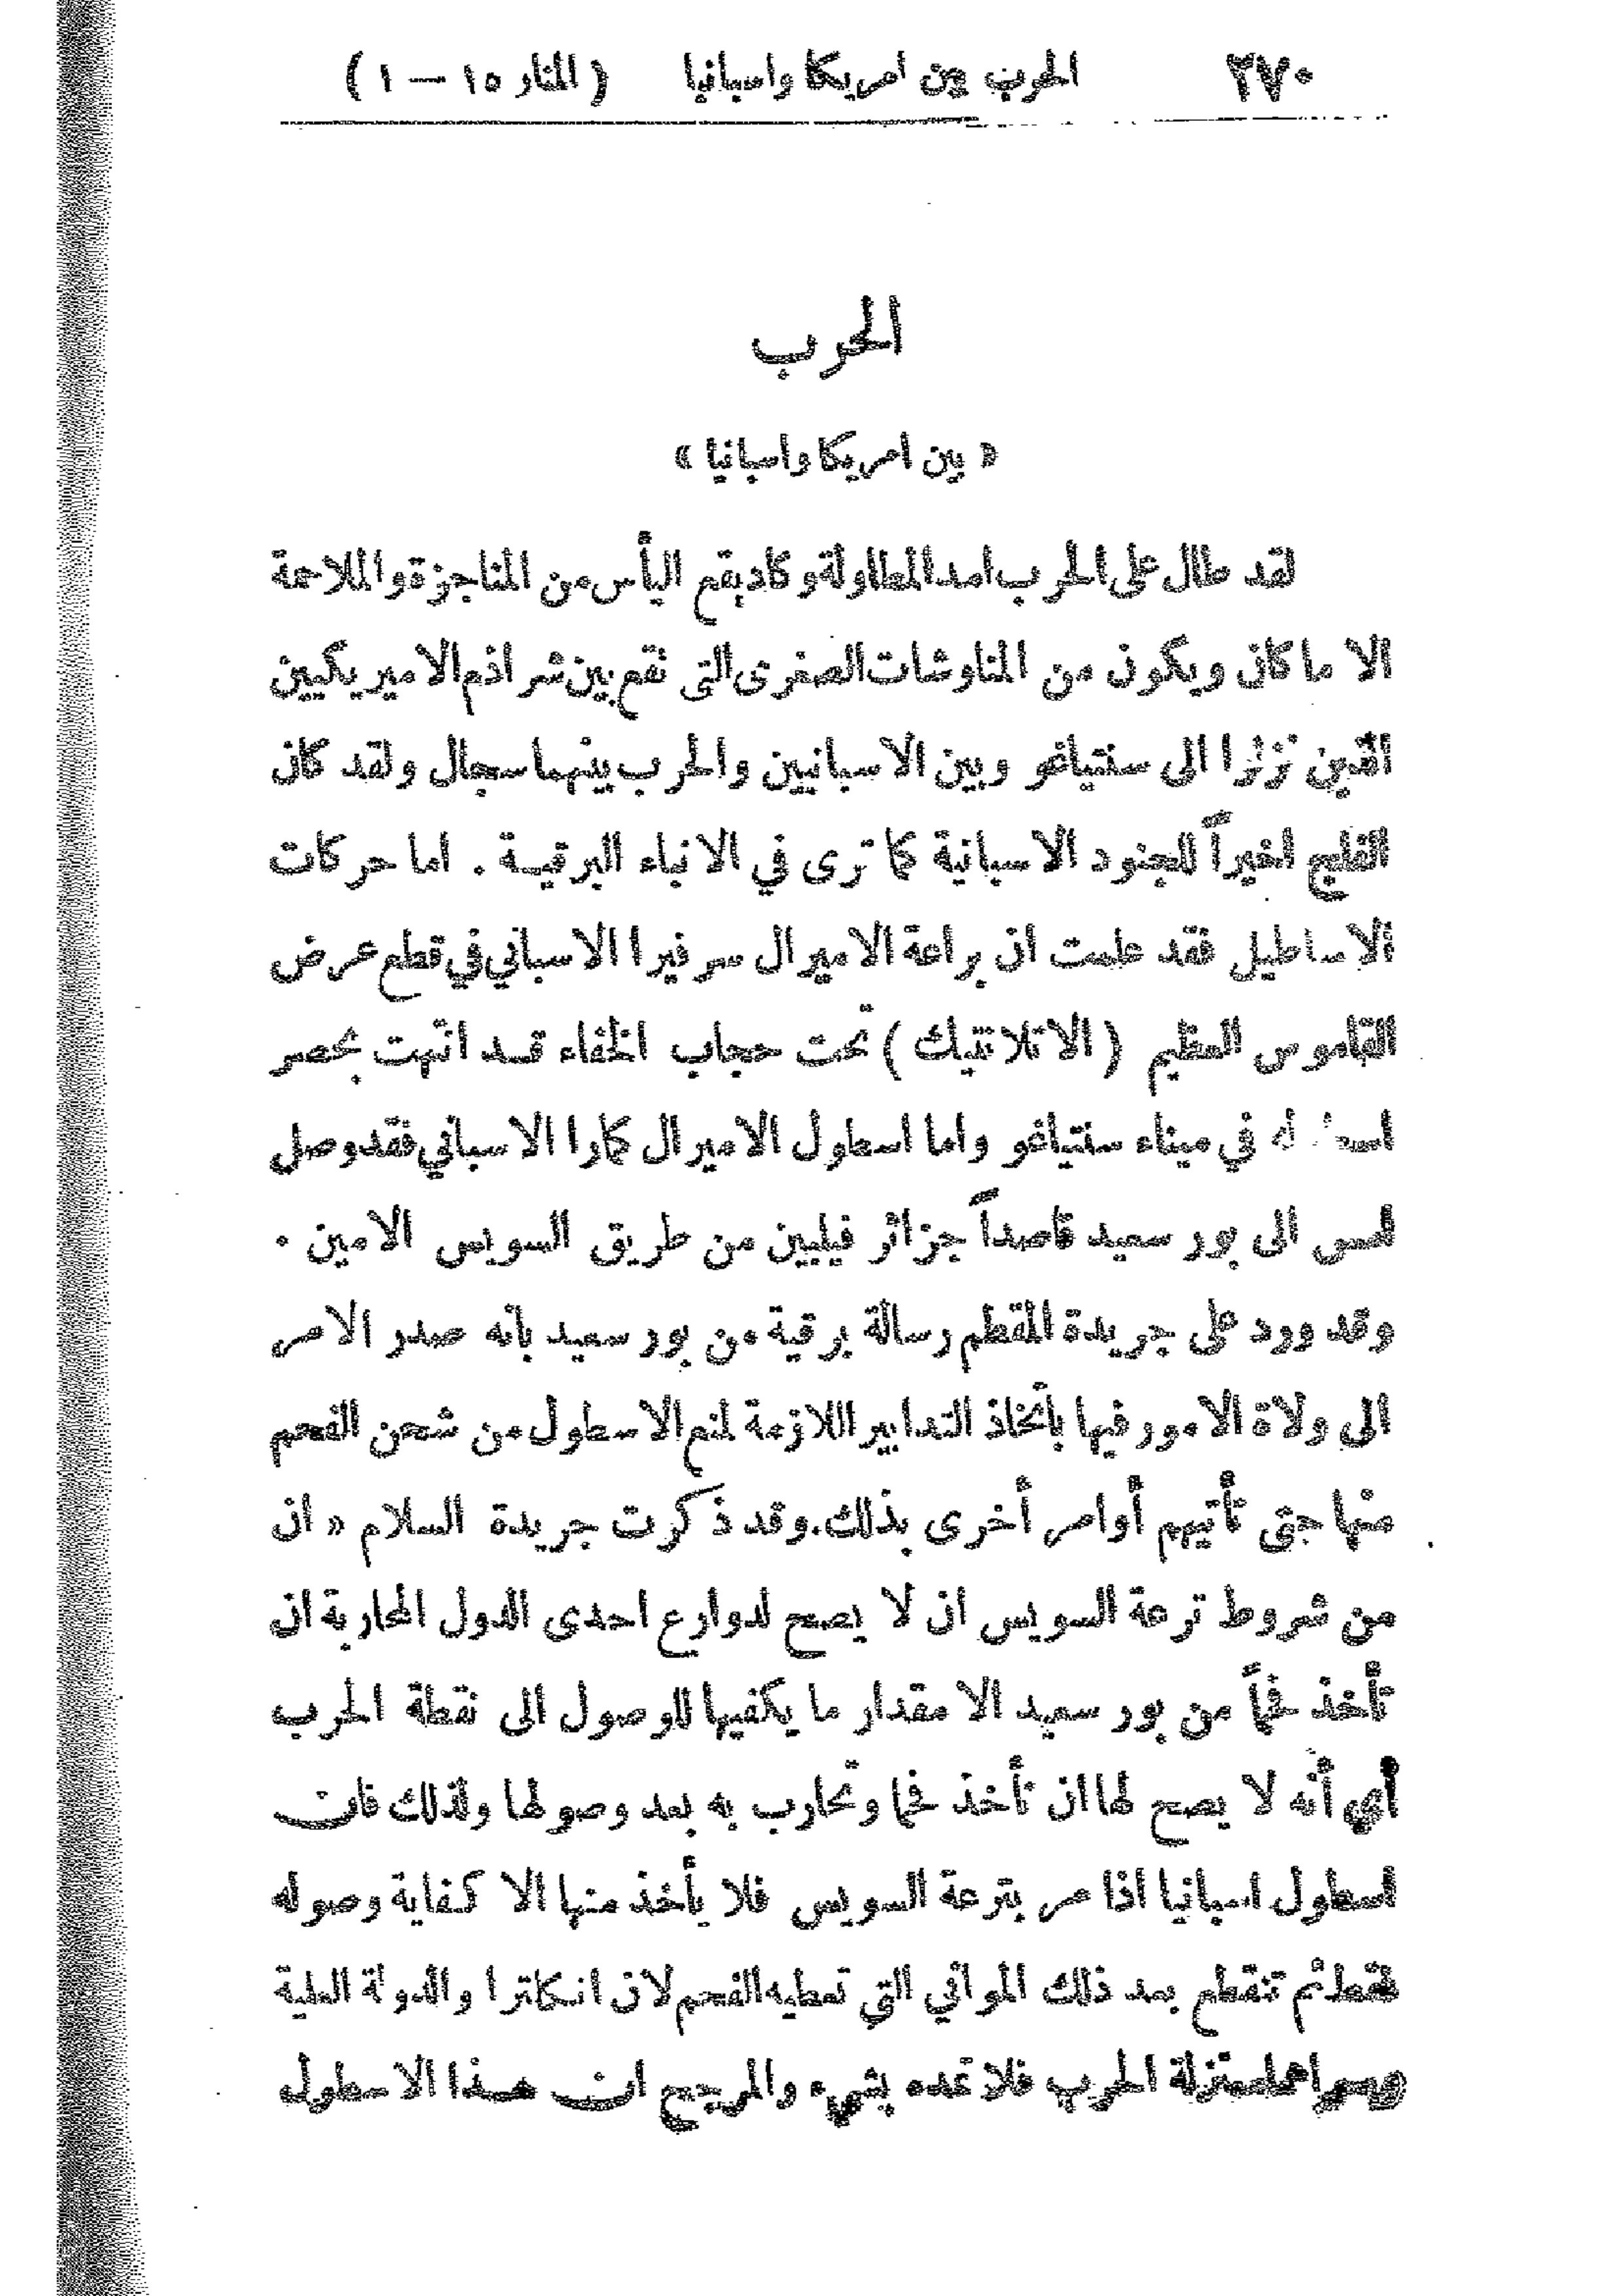 ٢٧٠ الحرب بين امريكا واسبانيا ( المنار ١٥ — ١ )
الحرب
« بين امريكا واسبانيا »
لقد طال على الحرب امد المطاولة وكاد يقع اليأس من المناجزة والملاحمة
الا ما كان ويكون من المناوشات الصغرى التى تقع بين شراذم الاميريكيين
الذين نزلوا الى سنتياغو وبين الاسبانيين والحرب بينهما سجال ولقد كان
الفلج اخيراً للجنود الاسبانية كما ترى في الانباء البرقية . اما حركات
الاساطيل فقد علمت ان براعة الاميرال سرفيرا الاسباني في قطع عرض
القاموس العظيم ( الاتلانتيك ) تحت حجاب الخفاء قد انتهت بحصر
في ميناء سنتياغو واما اسطول الاميرال كمارا الاسباني فقد وصل
امس الى بور سعيد قاصداً جزائر فيليبين من طريق السويس الامين .
وقد ورد على جريدة المقطم رسالة برقية من بور سعيد بانه صدر الامر
الى ولاة الامور فيها بأتخاذ التدابير اللازمة لمنع الاسطول من شحن الفحم
منها حتى تأتيهم أوامر أخرى بذلك. وقد ذكرت جريدة السلام « ان
من شروط ترعة السويس ان لا يصح لدوارع احدى الدول المحاربة ان
تأخذ فحماً من بور سعيد الا مقدار ما يكفيها للوصول الى نقطة الحرب
أي أنه لا يصح لها ان تأخذ فحما وتحارب به بعد وصولها ولذلك فان
اسطول اسبانيا اذا مر بترعة السويس فلا يأخذ منها الا كفاية وصوله
فقط ثم تنقطع بعد ذلك الموانئ التي تعطيه الفحم لان انكلترا والدولة العلية
معتزلة الحرب فلا تمده بشيء والمرجح ان هذا الاسطول